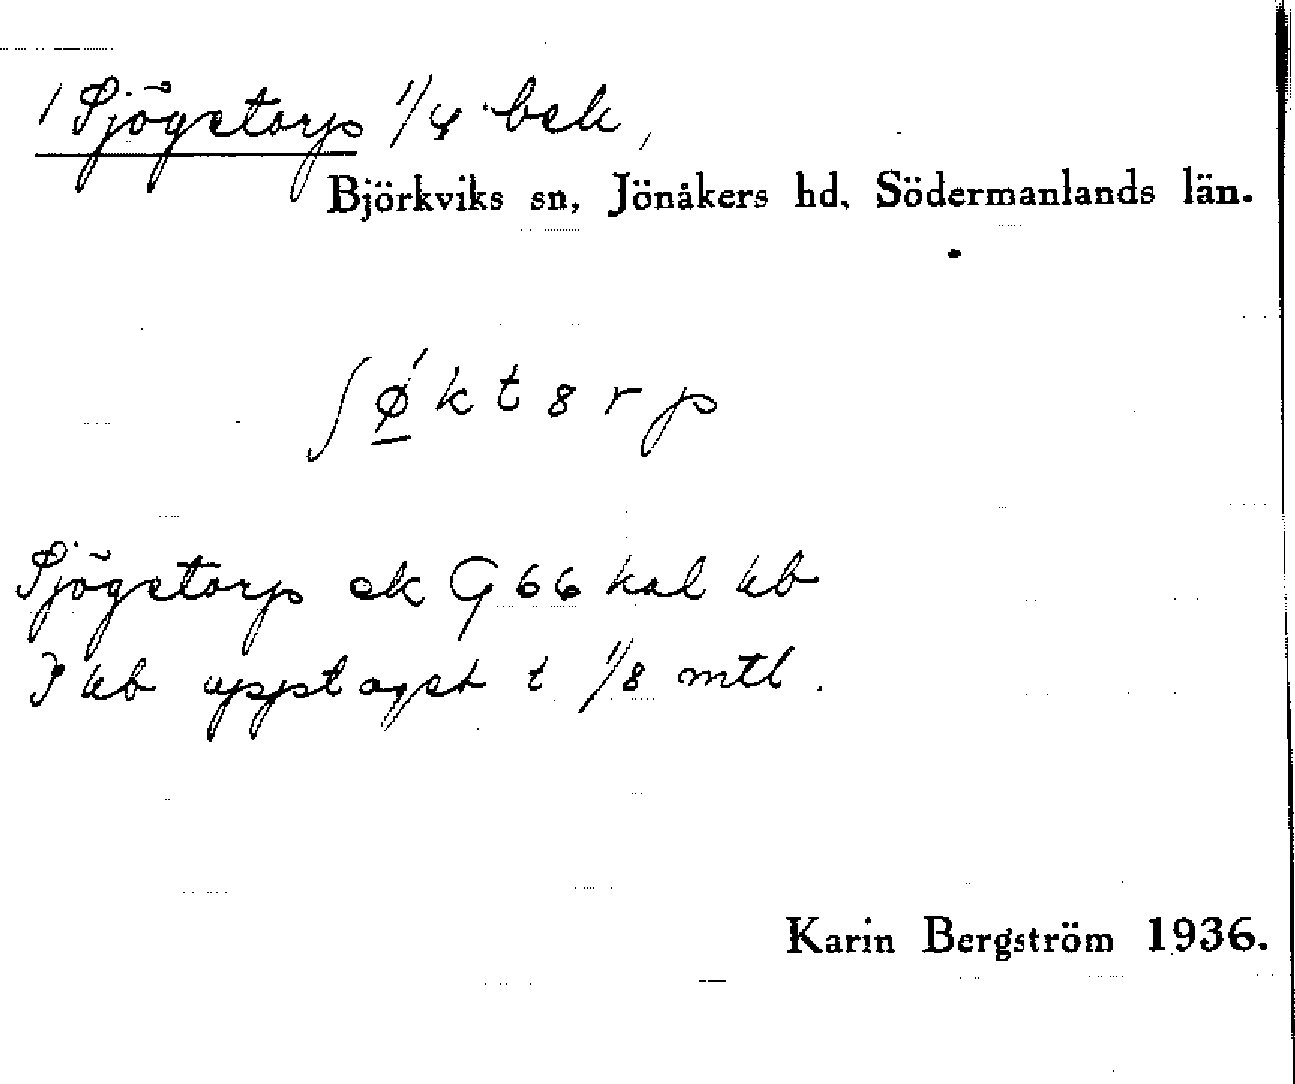 1 Sjögetorp 1/4 bek,
Björkviks sn, Jönåkers hd, Södermanlands län.
ʃǿ̱ktɞrp
Sjögetorp ek G 66 kal kb
I kb upptaget t 1/8 mtl.
Karin Bergström 1936.